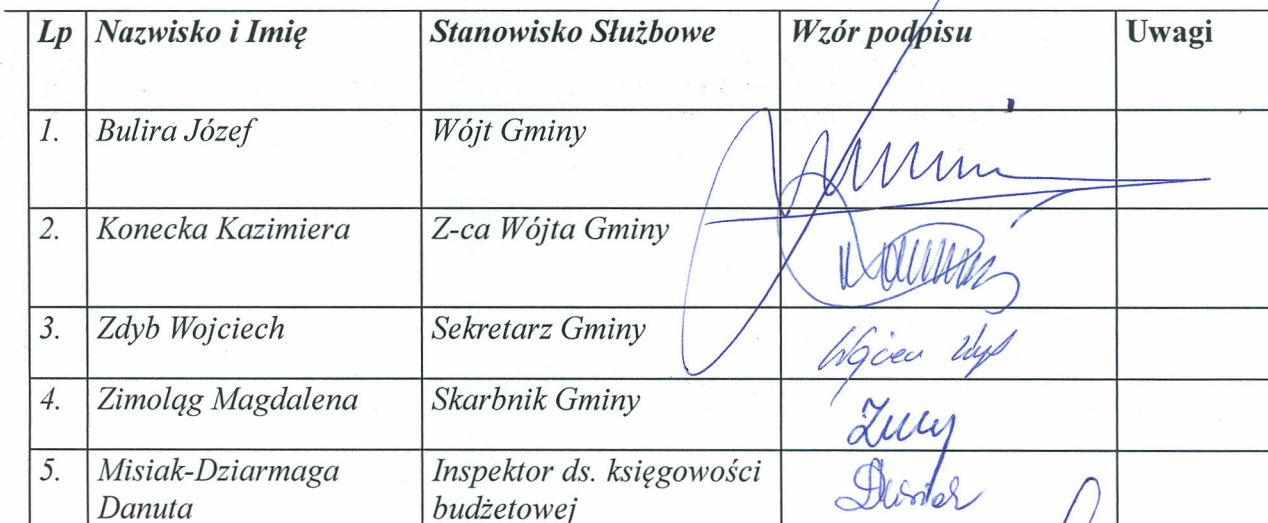 Lp Nazwisko i Imię Stanowisko Służbowe Wzór podpisu Uwagi
1. Bulira Józef Wójt Gminy
2. Konecka Kazimiera Z-ca Wójta Gminy
3. Zdyb Wojciech Sekretarz Gminy
4. Zimoląg Magdalena Skarbnik Gminy
5. Misiak-Dziarmaga Inspektor ds. księgowości
Danuta budżetowej